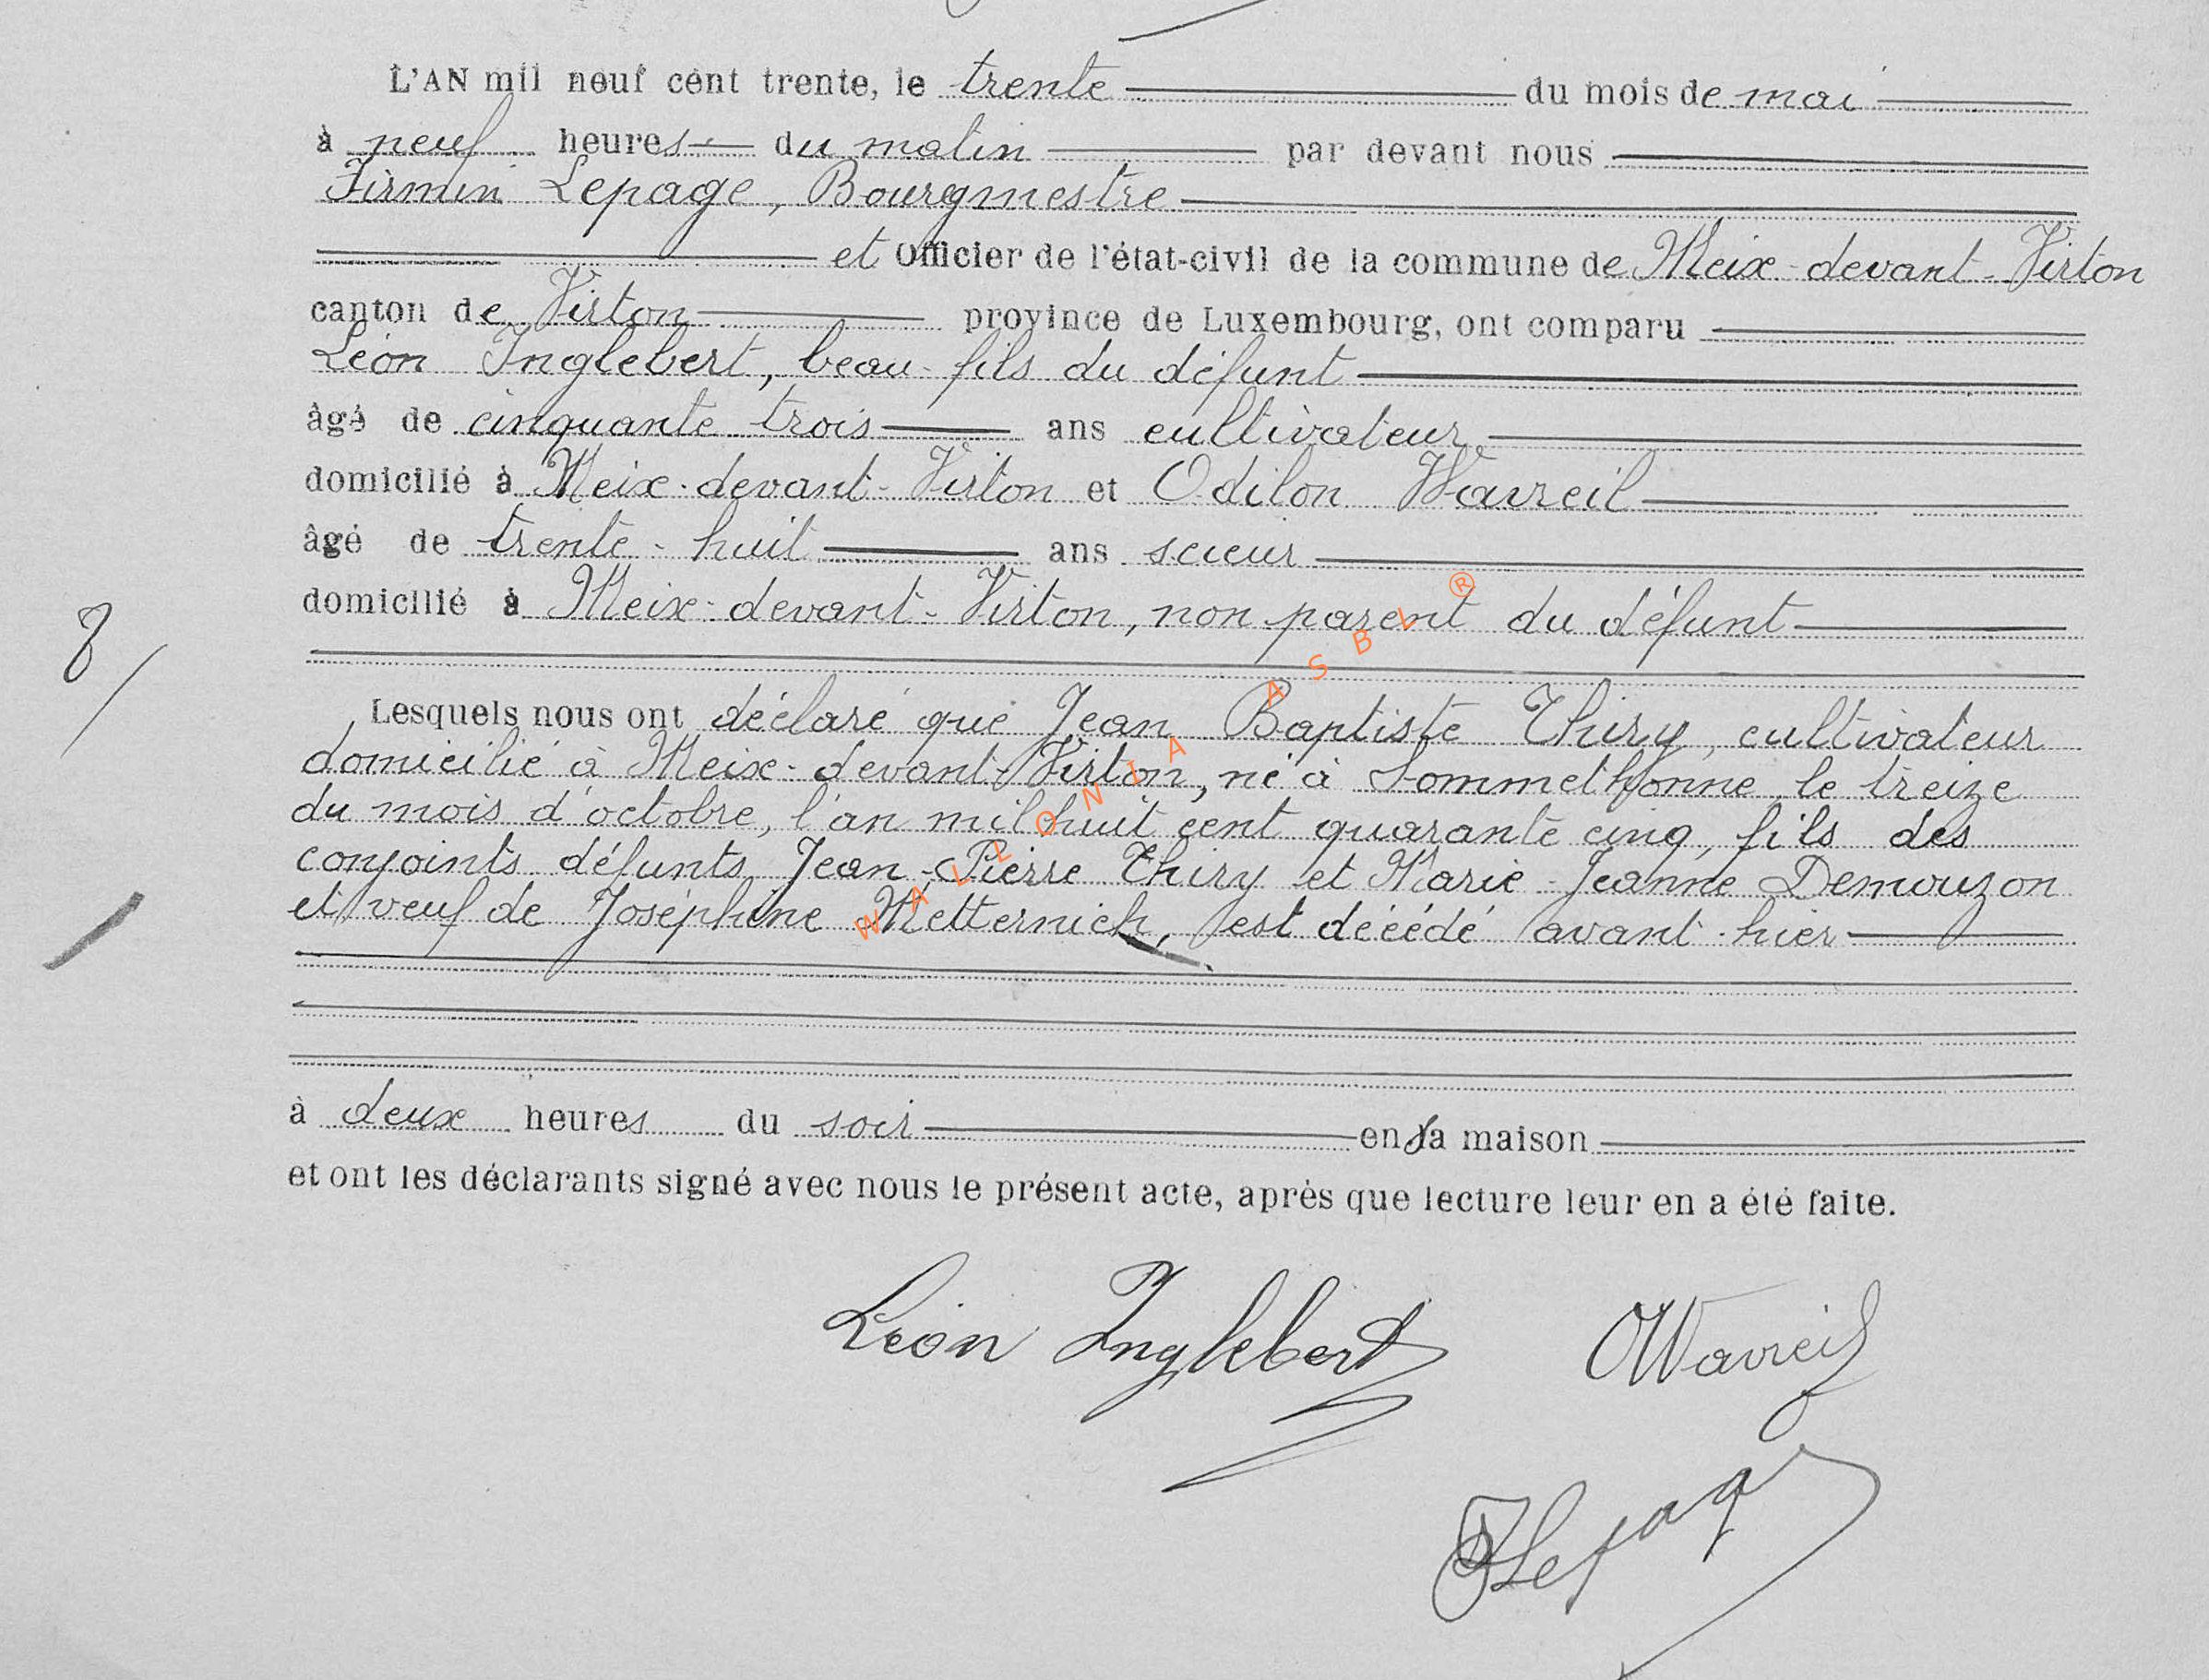 L'AN mil neuf cent trente, le trente du mois de mai
à neuf heures du matin par devant nous
Firmin Lepage, Bourgmestre
et Officier de l'état-civil de la commune de Meix-devant-Virton
canton de Virton province de Luxembourg, ont comparu
Léon Inglebert, beau-fils du défunt
âgé de cinquante trois ans cultivateur
domicilié à Meix-devant-Virton et Odilon Wavreil
âgé de trente-huit ans scieur
domicilié à Meix-devant-Virton, non parent du défunt
8/
Lesquels nous ont déclaré que Jean Baptiste Thiry, cultivateur
domicilié à Meix-devant-Virton, né à Sommethonne, le treize
du mois d'octobre, l'an mil huit cent quarante cinq, fils des
conjoints défunts Jean-Pierre Thiry et Marie-Jeanne Demouzon
et veuf de Joséphine Metternich, est décédé avant-hier
à deux heures du soir en sa maison
et ont les déclarants signé avec nous le présent acte, après que lecture leur en a été faite.
Léon Inglebert OWavreil
FLepage
WALLONIA ASBL ®